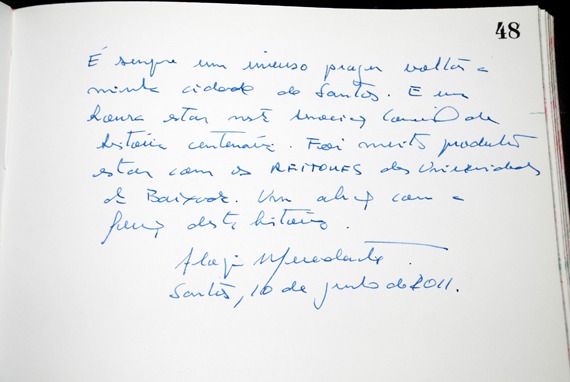 48
É sempre um imenso prazer voltar a
minha cidade de Santos. E uma
honra estar neste
história centenária. Foi muito produtivo
estar com os REITORES das Universidades
da Baixada. Um abraço com a
força desta história.
Aloizio Mercadante.
Santos, 10 de junho de 2011.